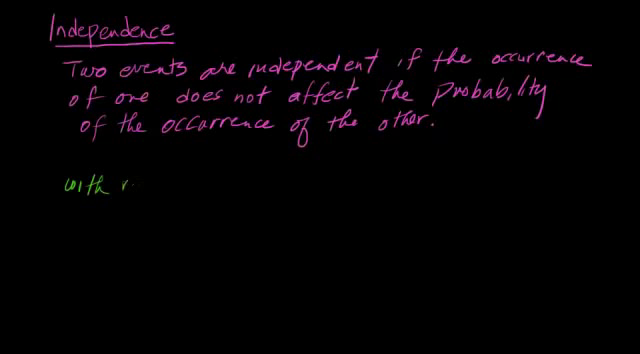 Independence
Two events are independent if the occurrence
of one does not affect the Probability
of the occurrence of the other.
with r